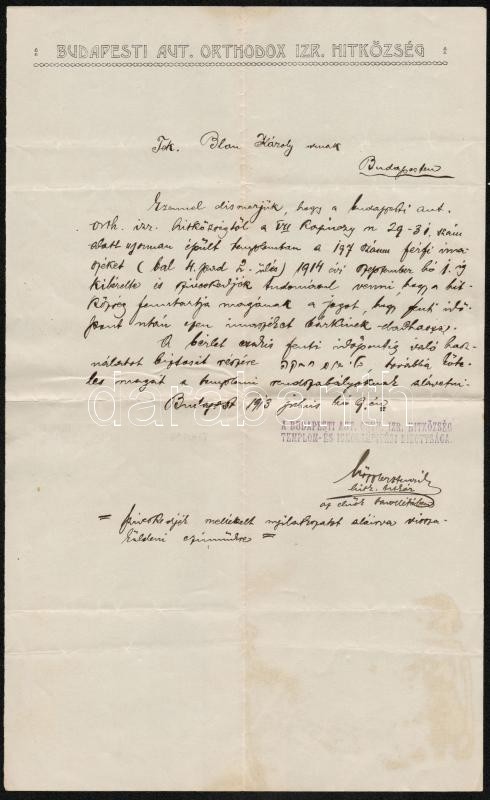 BUDAPESTI AUT. ORTHODOX IZR. HITKÖZSÉG
Tek. Blau Károly urnak
Budapesten
Ezennel elismerjük, hogy a budapesti aut.
orth. izr. hitközségtől a VII Kazinczy u 29-31. szám
alatt ujonnan épült templomban a 197 számu férfi ima-
széket (bal 4. pad 2. ülés) 1914 évi szeptember hó 1. ig
kibérelte és sziveskedjék tudomásul venni, hogy a hit-
község fentartja magának a jogot, hogy fenti idő-
pont után ezen imaszéket bárkinek eladhassa.
A bérlet csakis fenti időpontig való hasz-
nálatot biztosit részére továbbá köte-
les magát a templomi rendszabályoknak alávetni.
Budapest 1913 julius hó 9. én
A BUDAPESTI AUT. ORTH. IZR. HITKÖZSÉG
TEMPLOM- ÉS ISKOLAÉPITÉSI BIZOTTSÁGA.
hitk. titkár
az elnök távollétében
= sziveskedjék mellékelt nyilatkozatot aláirva vissza-
küldeni czimünkre =
darabanth